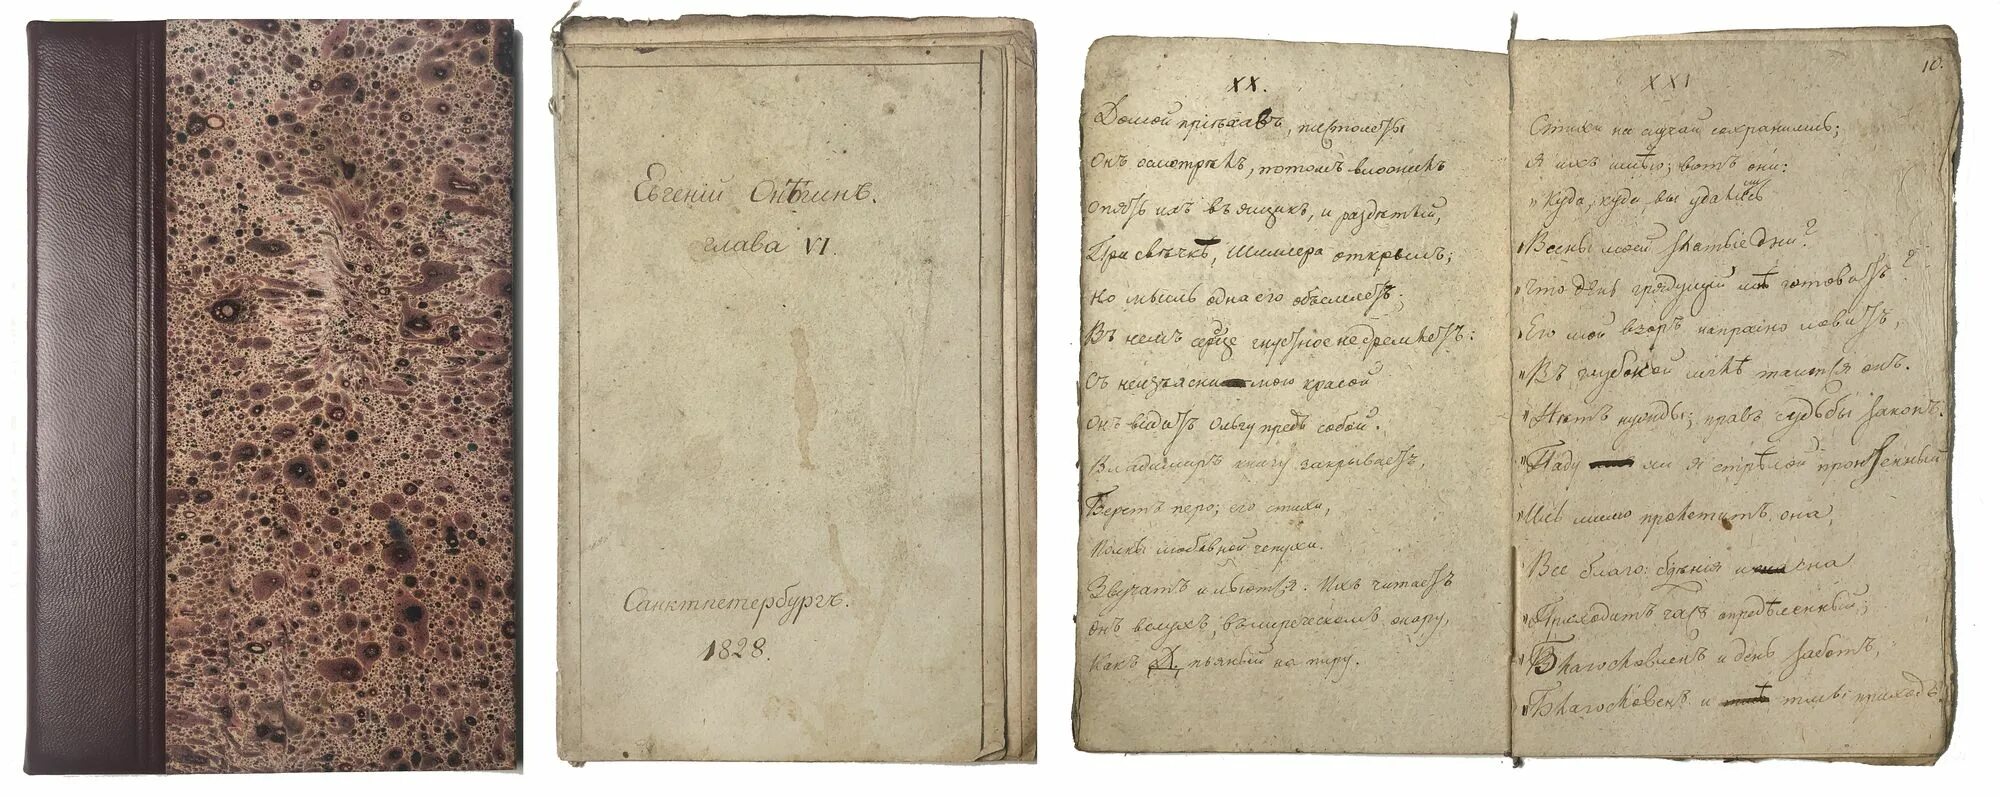 Евгеній Онѣгинъ.
глава VI.
Санктпетербургъ.
1828.
XX.
Домой пріѣхавъ, пистолеты
Онъ осмотрѣлъ, потомъ вложилъ
Опять ихъ въ ящикъ, и раздѣтый,
При свѣчкѣ, Шиллера открылъ;
Но мысль одна его объемлетъ;
Въ немъ сердце грустное недремлетъ:
Съ неизъяснимою красой
Онъ видитъ Ольгу предъ собой.
Владимиръ книгу закрываетъ,
Беретъ перо; его стихи,
Полны любовной чепухи.
Звучатъ и льются. Ихъ читаетъ
Онъ вслухъ, въ лирическомъ жару,
Какъ Д. пьяный на пиру.
10.
XXI
Стихи на случай сохранились;
Я ихъ имѣю; вотъ они:
"Куда, куда вы удалились
"Весны моей златые дни?
"Что день грядущій мнѣ готовитъ?
"Его мой взоръ напрасно ловитъ,
"Въ глубокой мглѣ таится онъ.
"Нѣтъ нужды; правъ судьбы законъ.
"Паду ли я стрѣлой пронзенный
"Иль мимо пролетитъ она,
Все благо: бдѣнія и сна
"Приходитъ часъ опредѣленный;
"Благословенъ и день заботъ,
"Благословенъ и тмы приходъ